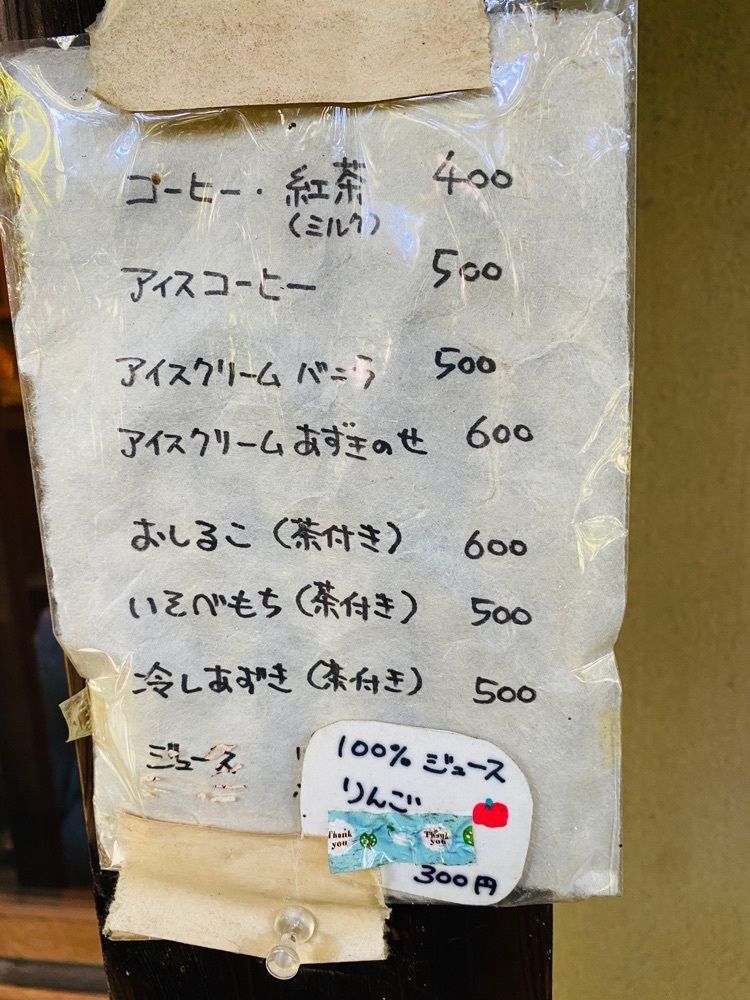 コーヒー・紅茶 400
(ミルク)
アイスコーヒー 500
アイスクリーム バニラ 500
アイスクリーム あずきのせ 600
おしるこ (茶付き) 600
いそべもち (茶付き) 500
冷しあずき (茶付き) 500
ジュース
100% ジュース
りんご
Thank you Thank you
300円